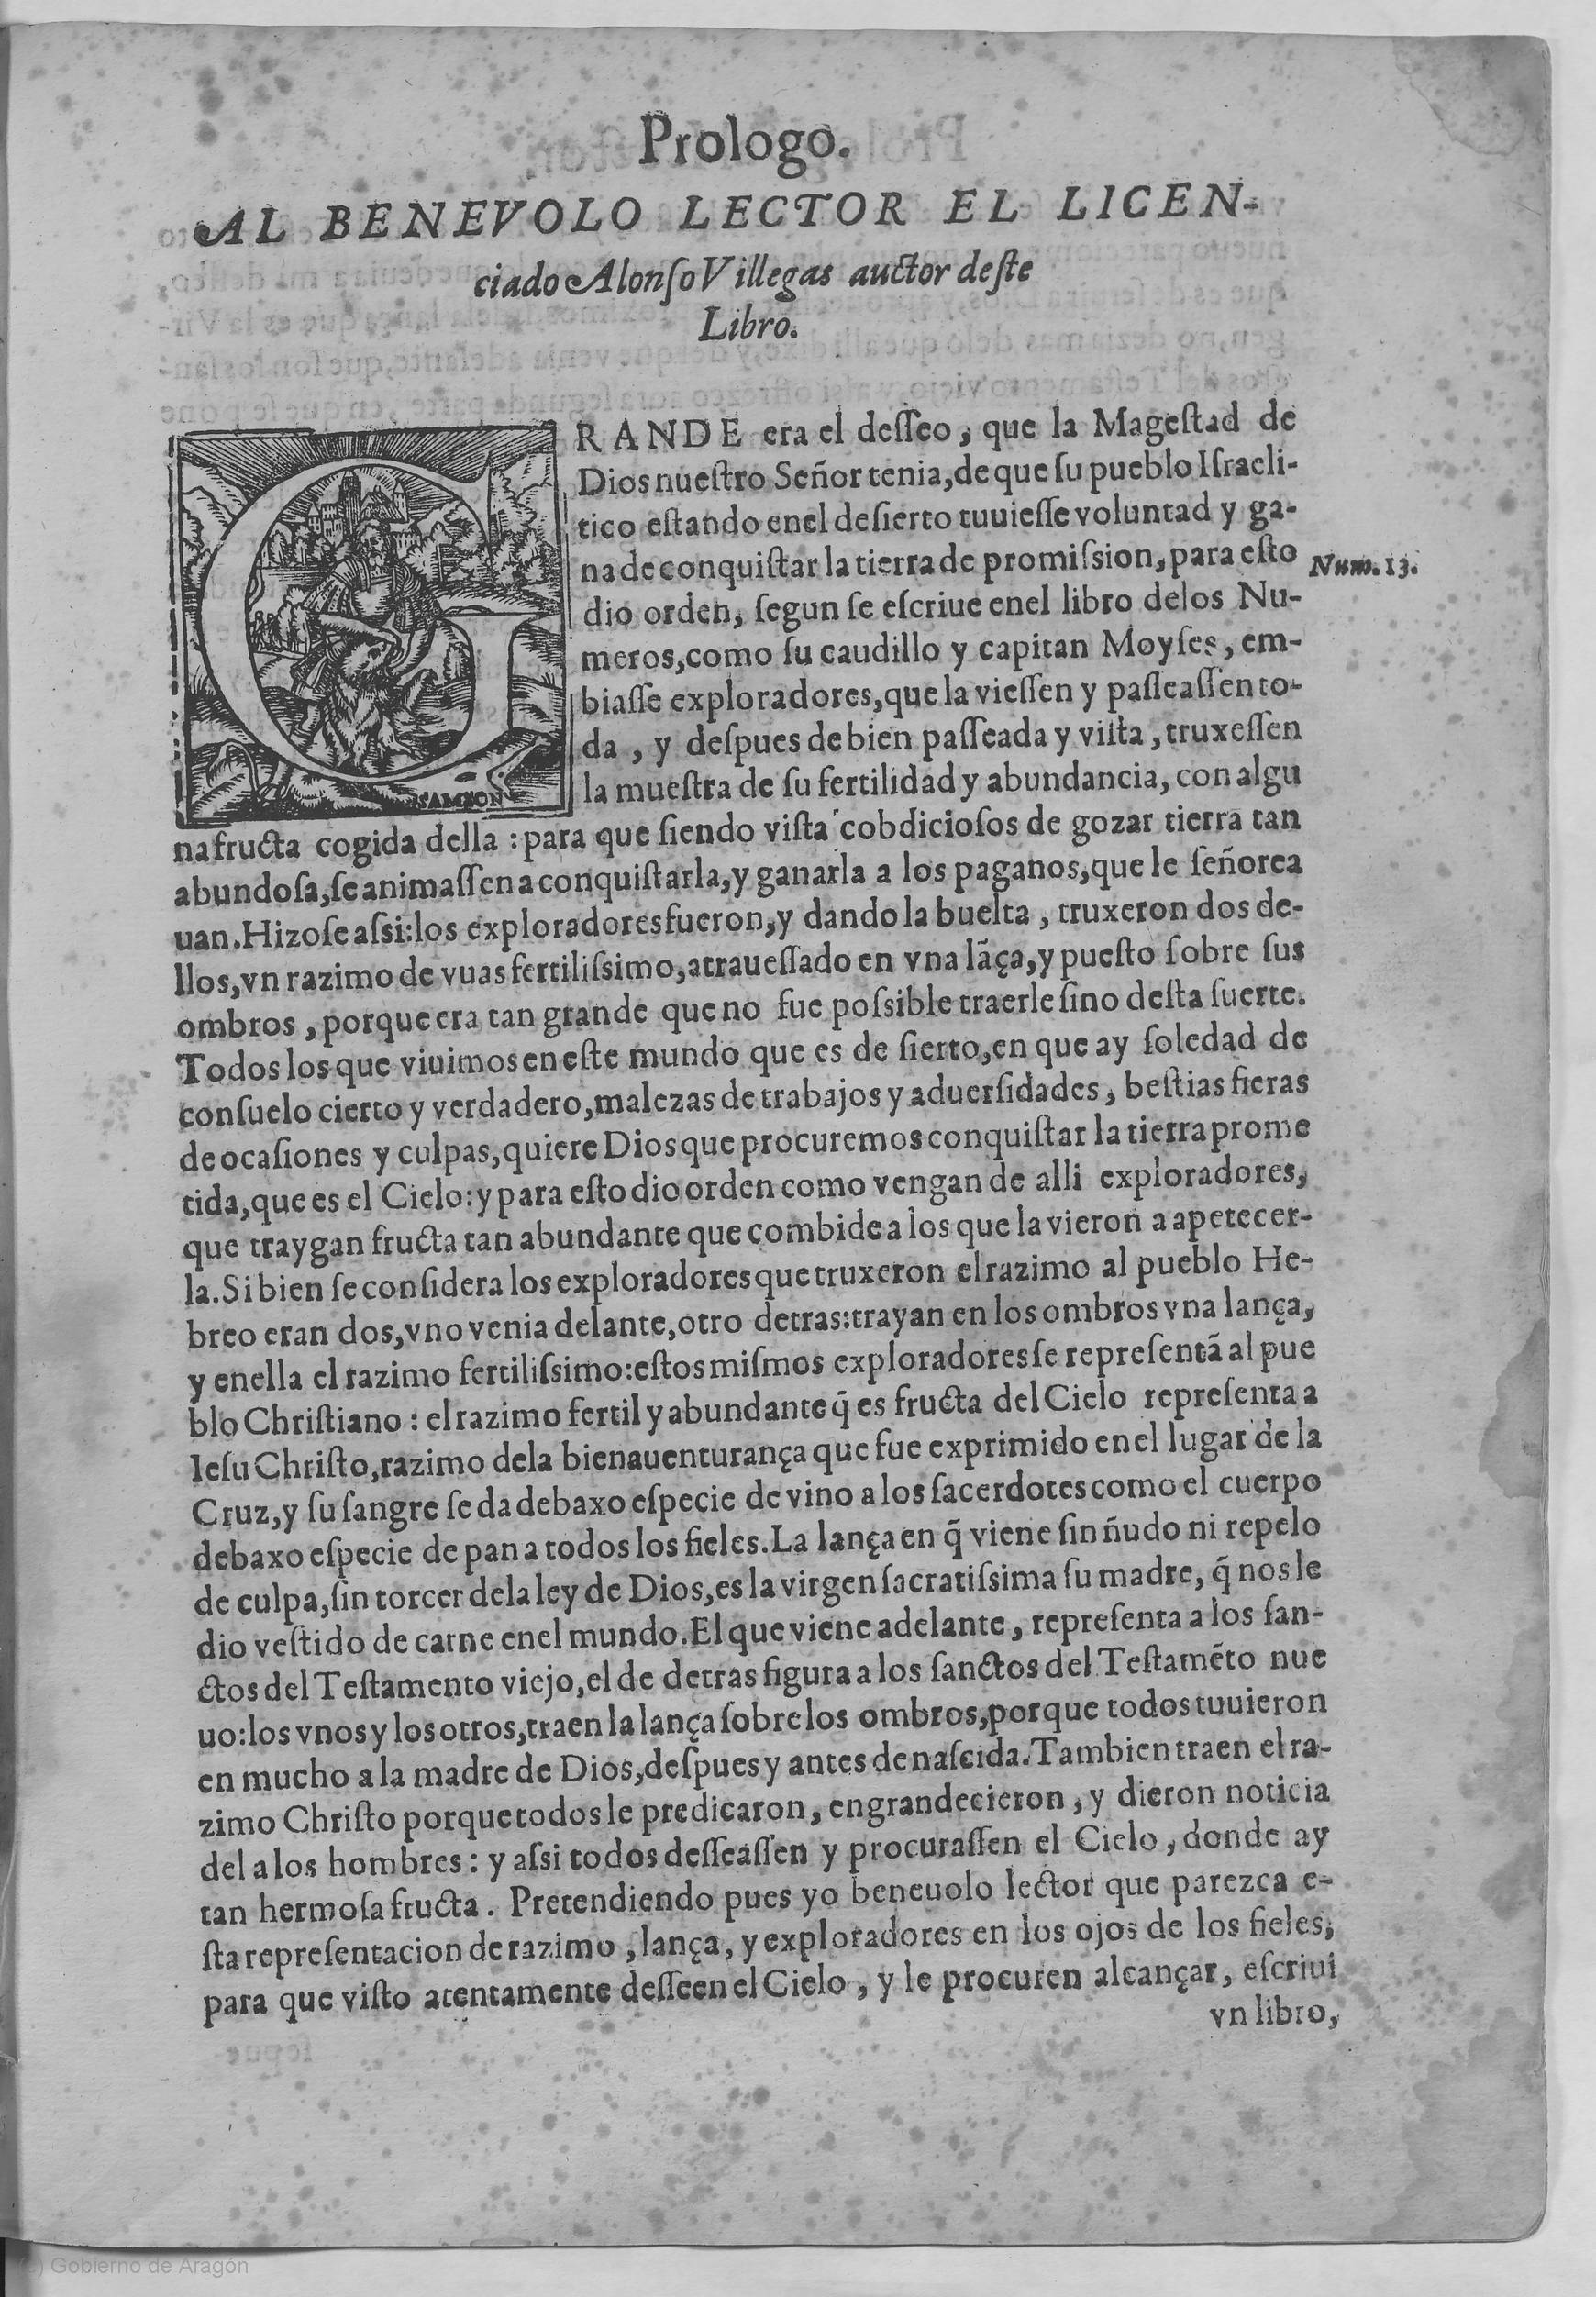 Prologo.
AL BENEVOLO LECTOR EL LICEN-
ciado Alonſo Villegas auctor deſte
Libro.
GRANDE era el deſſeo, que la Mageſtad de
Dios nueſtro Señor tenia, de que ſu pueblo Iſraeli-
tico eſtando enel deſierto tuuieſſe voluntad y ga-
na de conquiſtar la tierra de promiſsion, para eſto
Num. 13.
dio orden, ſegun ſe eſcriue enel libro delos Nu-
meros, como ſu caudillo y capitan Moyſes, em-
biaſſe exploradores, que la vieſſen y paſſeaſſen to-
da, y deſpues de bien paſſeada y viſta, truxeſſen
la mueſtra de ſu fertilidad y abundancia, con algu
SAMSON
na fructa cogida della: para que ſiendo viſta cobdicioſos de gozar tierra tan
abundoſa, ſe animaſſen a conquiſtarla, y ganarla a los paganos, que le ſeñorea
uan. Hizoſe aſsi: los exploradores fueron, y dando la buelta, truxeron dos de-
llos, vn razimo de vuas fertiliſsimo, atraueſſado en vna lãça, y pueſto ſobre ſus
ombros, porque era tan grande que no fue poſsible traerle ſino deſta ſuerte.
Todos los que viuimos en eſte mundo que es de ſierto, en que ay ſoledad de
conſuelo cierto y verdadero, malezas de trabajos y aduerſidades, beſtias fieras
de ocaſiones y culpas, quiere Dios que procuremos conquiſtar la tierra prome
tida, que es el Cielo: y para eſto dio orden como vengan de alli exploradores,
que traygan fructa tan abundante que combide a los que la vieron a apetecer-
la. Si bien ſe conſidera los exploradores que truxeron el razimo al pueblo He-
breo eran dos, vno venia delante, otro detras: trayan en los ombros vna lança,
y enella el razimo fertiliſsimo: eſtos miſmos exploradores ſe repreſentã al pue
blo Chriſtiano: el razimo fertil y abundante q̃ es fructa del Cielo repreſenta a
Ieſu Chriſto, razimo dela bienauenturança que fue exprimido enel lugar de la
Cruz, y ſu ſangre ſe da debaxo eſpecie de vino a los ſacerdotes como el cuerpo
debaxo eſpecie de pan a todos los fieles. La lança en q̃ viene ſin ñudo ni repelo
de culpa, ſin torcer dela ley de Dios, es la virgen ſacratiſsima ſu madre, q̃ nos le
dio veſtido de carne enel mundo. El que viene adelante, repreſenta a los ſan-
ctos del Teſtamento viejo, el de detras figura a los ſanctos del Teſtamẽto nue
uo: los vnos y los otros, traen la lança ſobre los ombros, porque todos tuuieron
en mucho a la madre de Dios, deſpues y antes de naſcida. Tambien traen el ra-
zimo Chriſto porque todos le predicaron, engrandecieron, y dieron noticia
del a los hombres: y aſsi todos deſſeaſſen y procuraſſen el Cielo, donde ay
tan hermoſa fructa. Pretendiendo pues yo beneuolo lector que parezca e-
ſta repreſentacion de razimo, lança, y exploradores en los ojos de los fieles,
para que viſto atentamente deſſeen el Cielo, y le procuren alcançar, eſcriui
vn libro,
Gobierno de Aragón